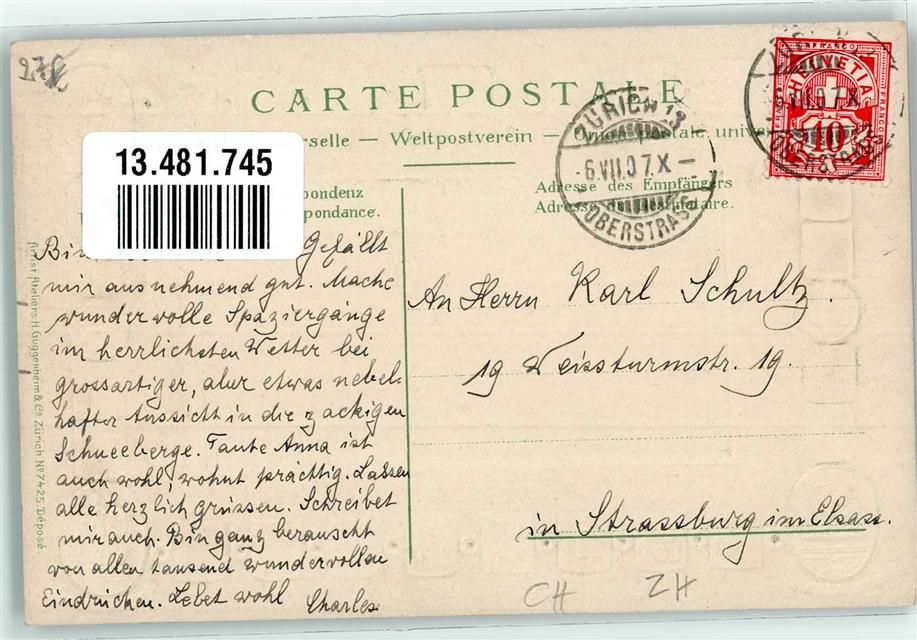 CARTE POSTALE
rselle — Weltpostverein — Union postale univer
13.481.745
pondenz
pondance.
Adresse des Empfängers
Adresse du destinataire.
FRANCO
HELVETIA
FRANCO
FRANCO
10
ZÜRICH 13
-6.VII.07.X-
OBERSTRASS
VII.07.X
Bin Gefällt
mir ausnehmend gut. Mache
wundervolle Spaziergänge
im herrlichsten Wetter bei
grossartiger, aber etwas nebel-
hafter Aussicht in die zackigen
Schneeberge. Tante Anna ist
auch wohl, wohnt prächtig. Lassen
alle herzlich grüssen. Schreibet
mir auch. Bin ganz berauscht
von allen tausend wundervollen
Eindrücken. Lebet wohl
Charles
An Herrn Karl Schultz.
19 Weissturmstr. 19.
in Strassburg im Elsass.
Künst. Ateliers H. Guggenheim & Co. Zürich No 7425. Déposé.
CH ZH